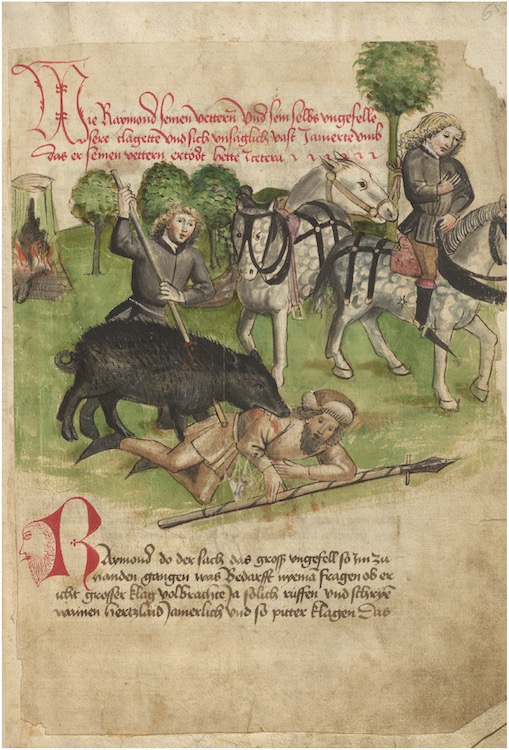 Wie Raymond seinen vettern Und sein selbs ungefelle
sere clagette und sich unsäglich vast Jamerte umb
das er seinen vettern ertödt hette Tetera
RAymond do der sach das gross ungefell so Jm zu
handen gangen was Bedarfft nyemā fragen ob er
icht grosser klag volbrachte Ja sölich rüffen und schryē
wainen hertzlaid Jamerlich und so piter klagen Das